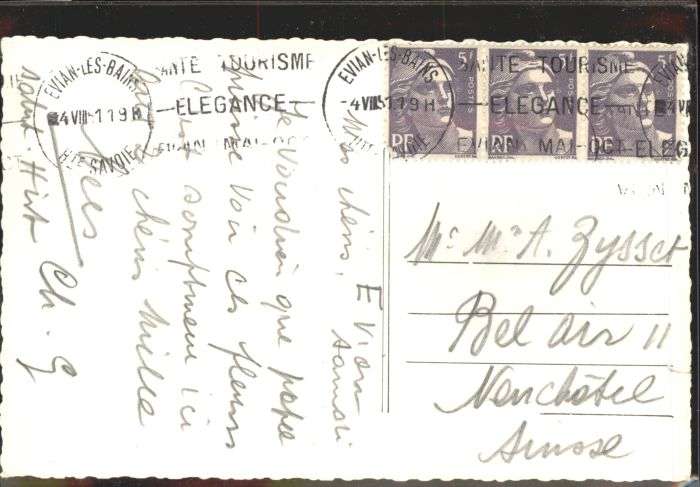 EVIAN-LES-BAINS
4 VIII-51 19H
HTE SAVOIE
SANTE - TOURISME
—ELEGANCE—
EVIAN MAI-OCT
EVIAN-LES-BAINS
-4 VIII 51 19H
SANTE - TOURISME
—ELEGANCE—
EVIAN MAI-OCT-ELEG
5F 5F 5F
POSTES
RF RF RF
Evian
samedi
Mes chéris,
Je voudrais que papa
puisse voir ces fleurs
C'est somptueux ici
chéris mille
Ch. G
Mr Me A. Zysset
Bel air 11
Neuchâtel
Suisse